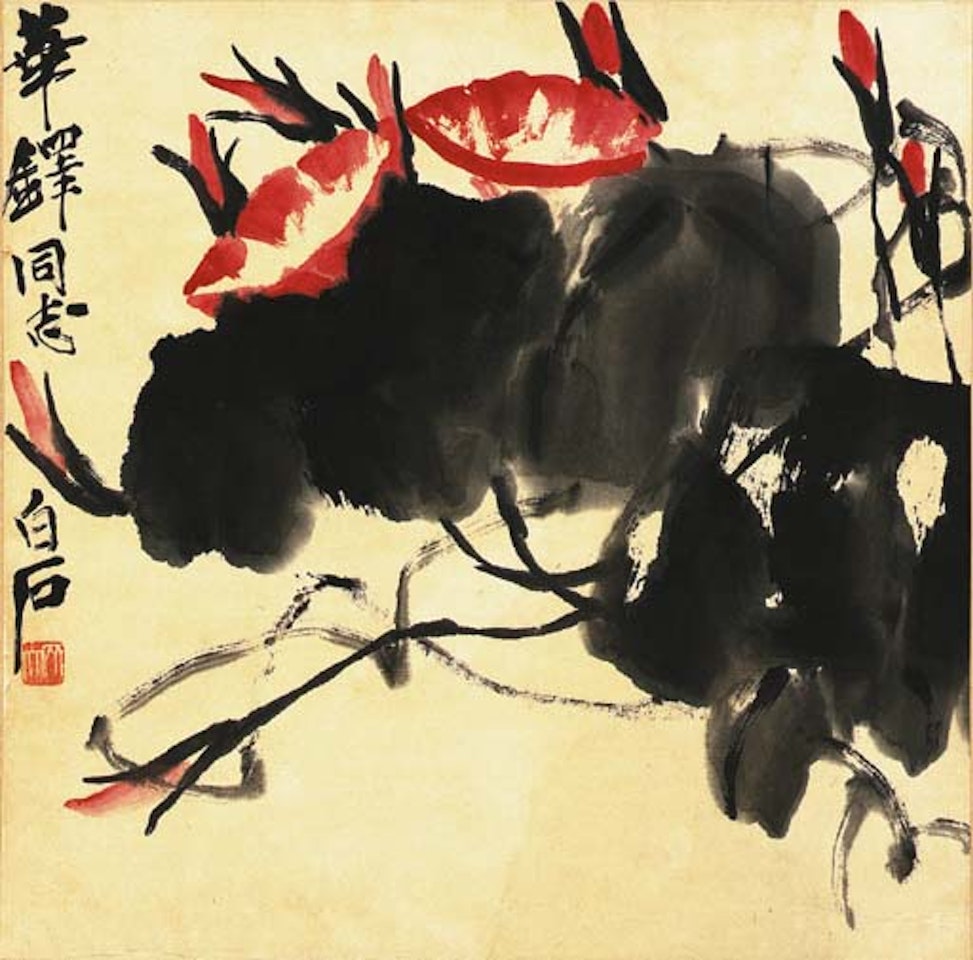 華鐸同志
白石